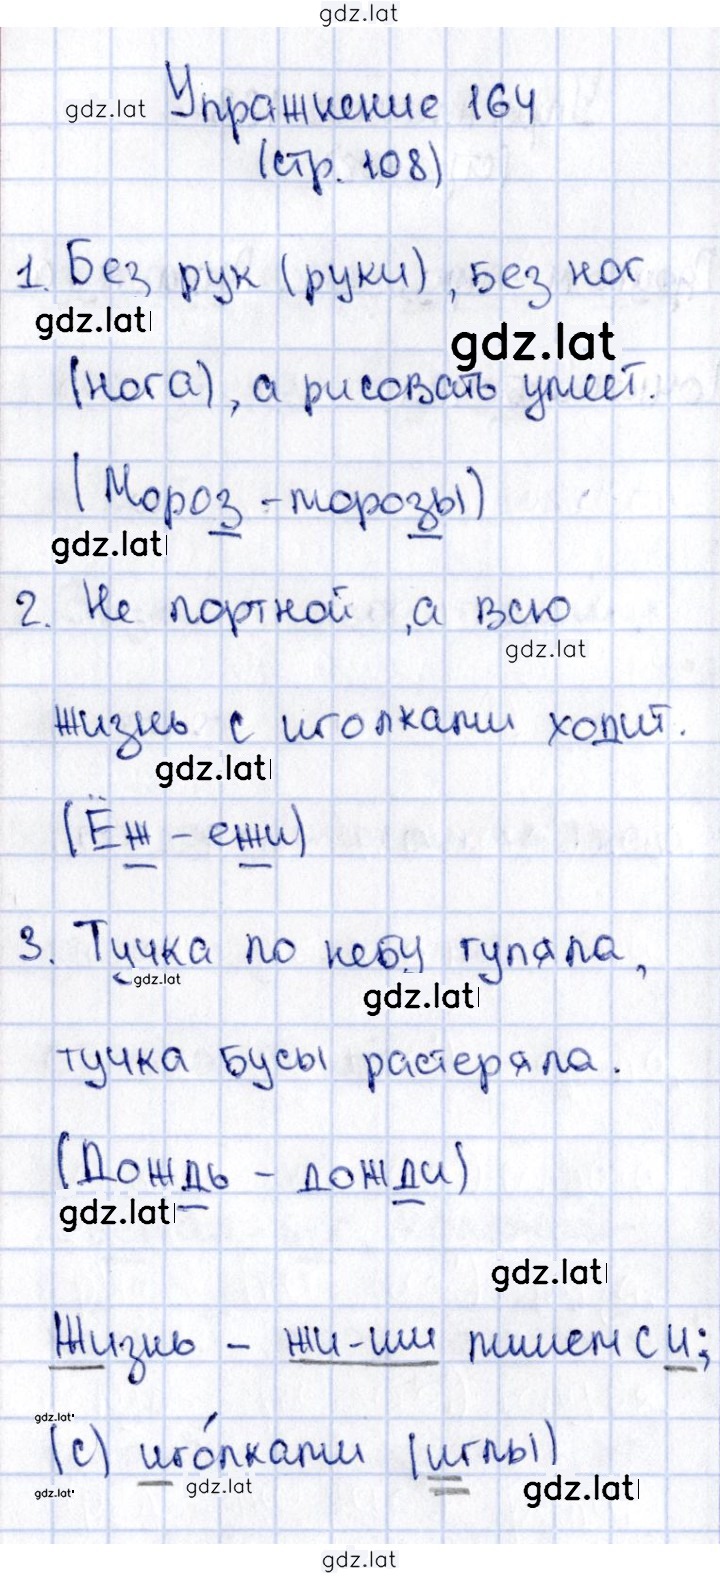 gdz.lat
Упражнение 164
gdz.lat
(стр. 108)
1. Без рук (руки), без ног
gdz.lat
gdz.lat
(нога), а рисовать умеет.
(Мороз - морозы)
gdz.lat
2. Не портной, а всю
gdz.lat
жизнь с иголками ходит.
gdz.lat
(Ёж - ежи)
3. Тучка по небу гуляла,
gdz.lat
gdz.lat
тучка бусы растеряла.
(Дождь - дожди)
gdz.lat
gdz.lat
Жизнь - жи-ши пишем с и;
gdz.lat
(с) иго́лками (иглы)
gdz.lat
gdz.lat
gdz.lat
gdz.lat